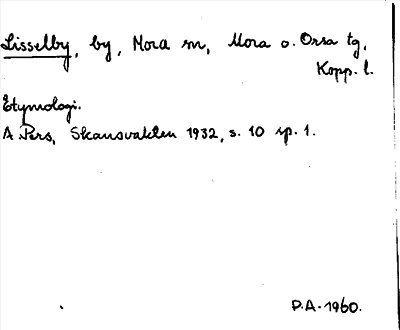 Lisselby, by, Mora sn, Mora o. Orsa tg,
Kopp. l.
Etymologi.
A Pers, Skansvakten 1932, s. 10 sp. 1.
P.A. 1960.